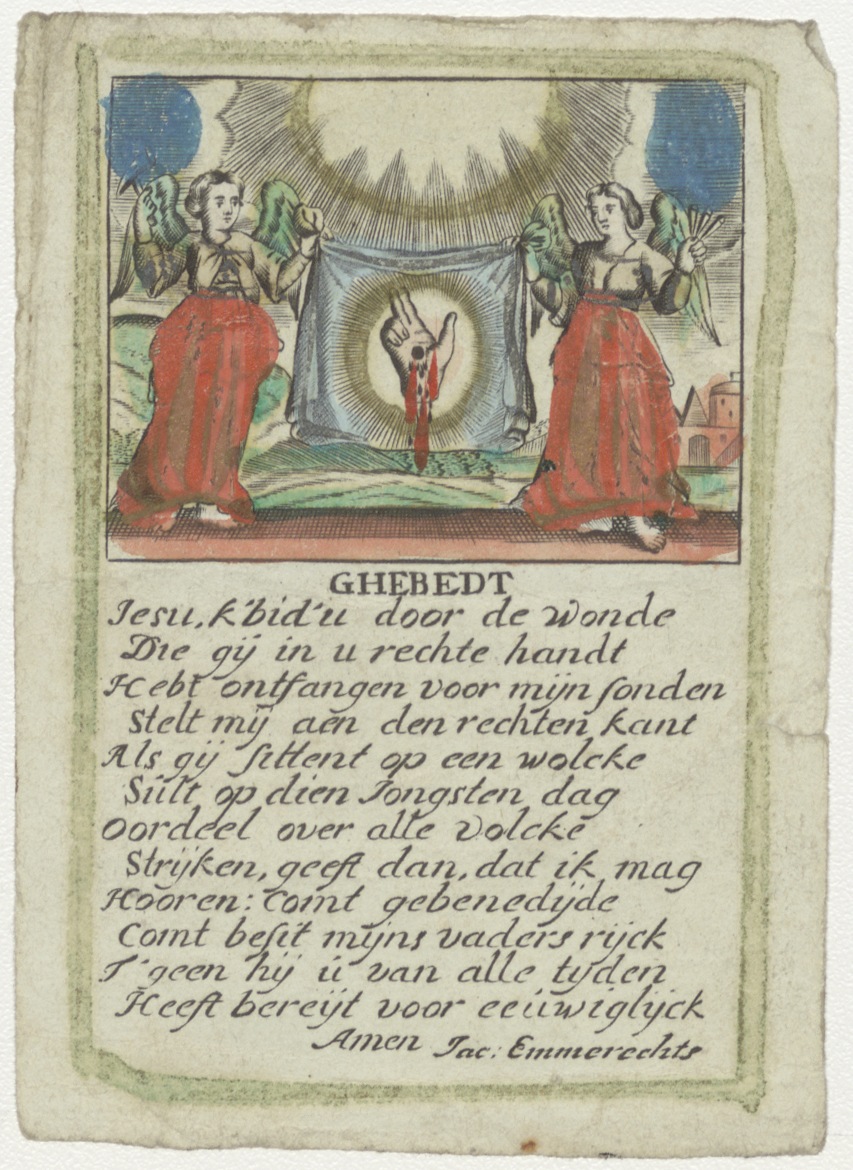 GHEBEDT
Jesu, k'bid'u door de wonde
Die gij in u rechte handt
Hebt ontfangen voor mijn sonden
Stelt mij aen den rechten kant
Als gij sittent op een wolcke
Sult op dien Jongsten dag
Oordeel over alle volcke
Strijken, geeft dan, dat ik mag
Hooren: Comt gebenedijde
Comt besit mijns vaders rijck
T'geen hij u van alle tyden
Heeft bereijt voor eeuwiglijck
Amen Jac: Emmerechts